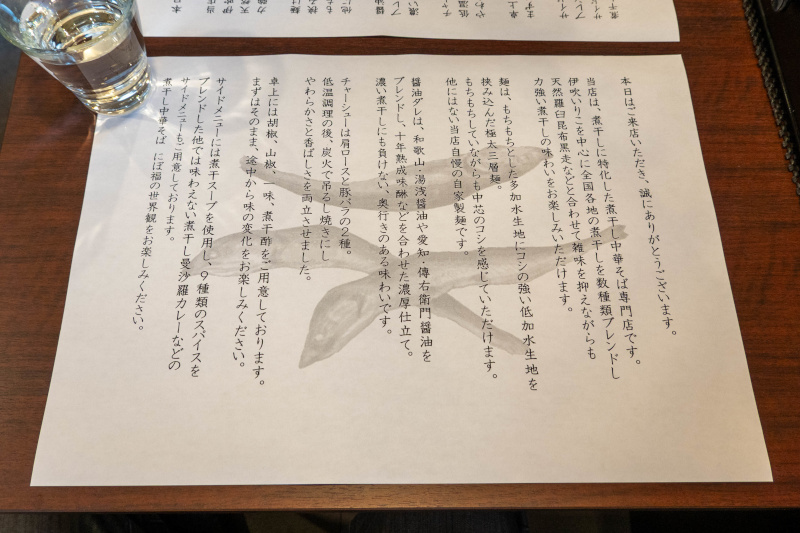 本日はご来店いただき、誠にありがとうございます。
当店は、煮干しに特化した煮干し中華そば専門店です。
伊吹いりこを中心に全国各地の煮干しを数種類ブレンドし
天然羅臼昆布黒走などと合わせて雑味を抑えながらも
力強い煮干しの味わいをお楽しみいただけます。
麺は、もちもちとした多加水生地にコシの強い低加水生地を
挟み込んだ極太三層麺。
もちもちしていながらも中芯のコシを感じていただけます。
他にはない当店自慢の自家製麺です。
醤油ダレは、和歌山・湯浅醤油や愛知・傳右衛門醤油を
ブレンドし、十年熟成味醂などを合わせた濃厚仕立て。
濃い煮干しにも負けない、奥行きのある味わいです。
チャーシューは肩ロースと豚バラの2種。
低温調理の後、炭火で吊るし焼きにし
やわらかさと香ばしさを両立させました。
卓上には胡椒、山椒、一味、煮干酢をご用意しております。
まずはそのまま、途中から味の変化をお楽しみください。
サイドメニューには煮干スープを使用し、9種類のスパイスを
ブレンドした他では味わえない煮干し曼沙羅カレーなどの
サイドメニューもご用意しております。
煮干し中華そば にぼ福の世界観をお楽しみください。